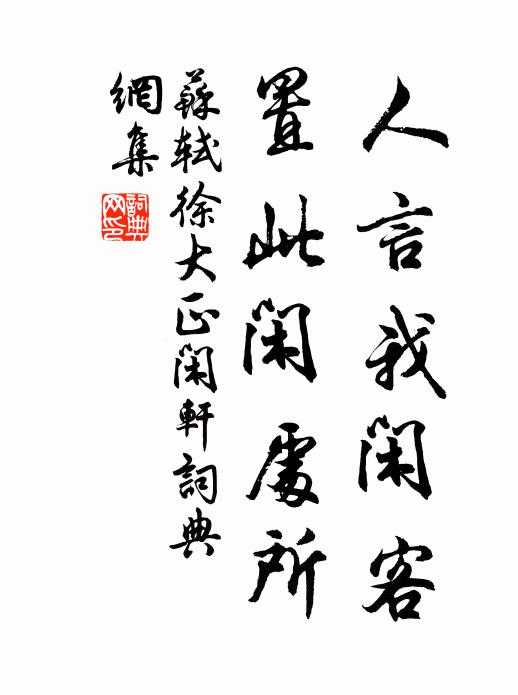 人言我閑客
置此閑處所
蘇軾徐大正閑軒詞典
網集
詞典
网印